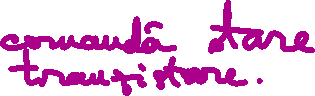 comandă stare
tranzistoare.